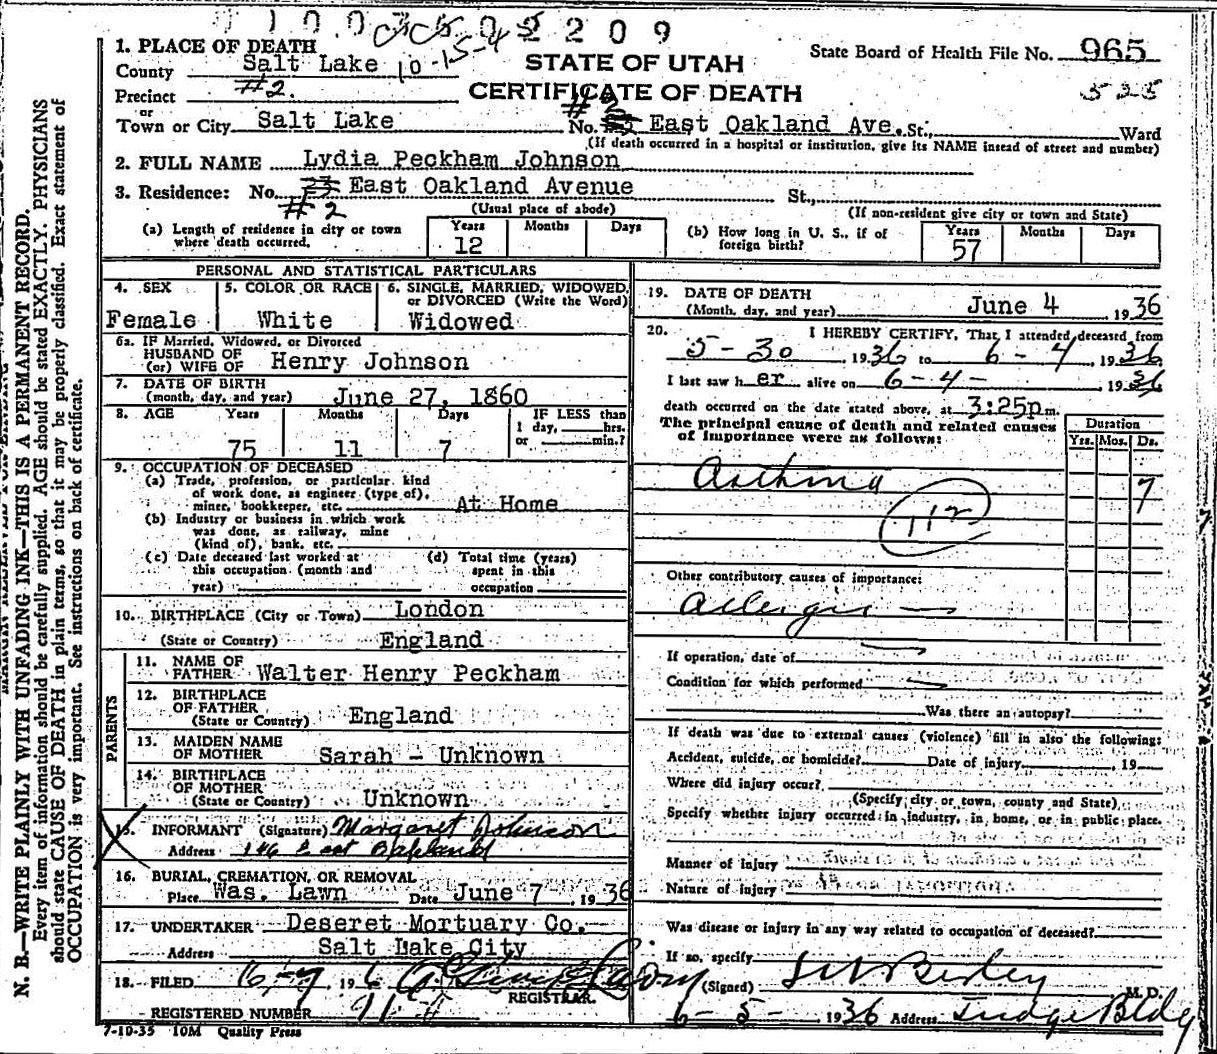 2 0 9
10-15-4
1. PLACE OF DEATH
STATE OF UTAH
State Board of Health File No. 965
County Salt Lake
Precinct #2.
CERTIFICATE OF DEATH
525
or
Town or City Salt Lake No. #2 East Oakland Ave. St., Ward
(If death occurred in a hospital or institution, give its NAME insead of street and number)
2. FULL NAME Lydia Peckham Johnson
3. Residence: No. 23 East Oakland Avenue St.,
#2
(Usual place of abode)
(If non-resident give city or town and State)
(a) Length of residence in city or town where death occurred. Years 12 Months Days
(b) How long in U. S., if of foreign birth? Years 57 Months Days
PERSONAL AND STATISTICAL PARTICULARS
4. SEX Female
5. COLOR OR RACE White
6. SINGLE, MARRIED, WIDOWED, or DIVORCED (Write the Word) Widowed
6a. IF Married, Widowed, or Divorced
HUSBAND OF
(or) WIFE OF Henry Johnson
7. DATE OF BIRTH
(month, day, and year) June 27, 1860
8. AGE Years 75 Months 11 Days 7
IF LESS than
1 day, hrs.
or min.?
9. OCCUPATION OF DECEASED
(a) Trade, profession, or particular kind
of work done, as engineer (type of),
miner, bookkeeper, etc. At Home
(b) Industry or business in which work
was done, as railway, mine
(kind of), bank, etc.
(c) Date deceased last worked at
this occupation (month and
year)
(d) Total time (years)
spent in this
occupation
10. BIRTHPLACE (City or Town) London
(State or Country) England
PARENTS
11. NAME OF
FATHER Walter Henry Peckham
12. BIRTHPLACE
OF FATHER
(State or Country) England
13. MAIDEN NAME
OF MOTHER Sarah - Unknown
14. BIRTHPLACE
OF MOTHER
(State or Country) Unknown
15. INFORMANT (Signature) Margaret Johnson
Address 146 East Oakland
16. BURIAL, CREMATION, OR REMOVAL
Place Was. Lawn Date June 7, 1936
17. UNDERTAKER Deseret Mortuary Co.
Address Salt Lake City
18. FILED 193
REGISTRAR.
REGISTERED NUMBER
7-10-35 10M Quality Press
19. DATE OF DEATH
(Month, day, and year) June 4 1936
20. I HEREBY CERTIFY, That I attended deceased from
5-30, 1936 to 6-4, 1936
I last saw her alive on 6-4-, 1936
death occurred on the date stated above, at 3:25p m.
The principal cause of death and related causes
of importance were as follows:
Duration
Yrs. Mos. Ds.
Asthma 7
112
Other contributory causes of importance:
Allergic
If operation, date of
Condition for which performed
Was there an autopsy?
If death was due to external causes (violence) fill in also the following:
Accident, suicide, or homicide? Date of injury, 19
Where did injury occur?
(Specify city or town, county and State)
Specify whether injury occurred in industry, in home, or in public place.
Manner of injury
Nature of injury
Was disease or injury in any way related to occupation of deceased?
If so, specify
(Signed) M.D.
6-5-1936 Address Judge Bldg
N. B.—WRITE PLAINLY WITH UNFADING INK—THIS IS A PERMANENT RECORD.
Every item of information should be carefully supplied. AGE should be stated EXACTLY. PHYSICIANS
should state CAUSE OF DEATH in plain terms, so that it may be properly classified. Exact statement of
OCCUPATION is very important. See instructions on back of certificate.